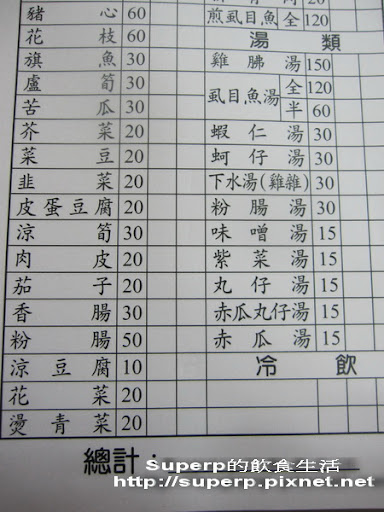 豬心 60
花枝 60
旗魚 30
蘆筍 30
苦瓜 30
芥菜 20
菜豆 20
韭菜 20
皮蛋豆腐 20
涼筍 30
肉皮 20
茄子 20
香腸 30
粉腸 50
涼豆腐 10
花菜 20
燙青菜 20
煎虱目魚 全 120
湯類
雞胇湯 150
虱目魚湯 全 120
半 60
蝦仁湯 30
蚵仔湯 30
下水湯(雞雜) 30
粉腸湯 30
味噌湯 15
紫菜湯 15
丸仔湯 15
赤瓜丸仔湯 15
赤瓜湯 15
冷飲
總計：
Superp的飲食生活
http://superp.pixnet.net